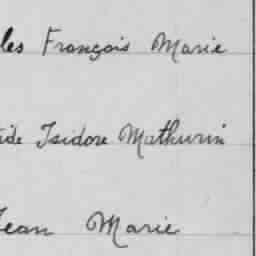 les François Marie
ide Isidore Mathurin
Jean Marie